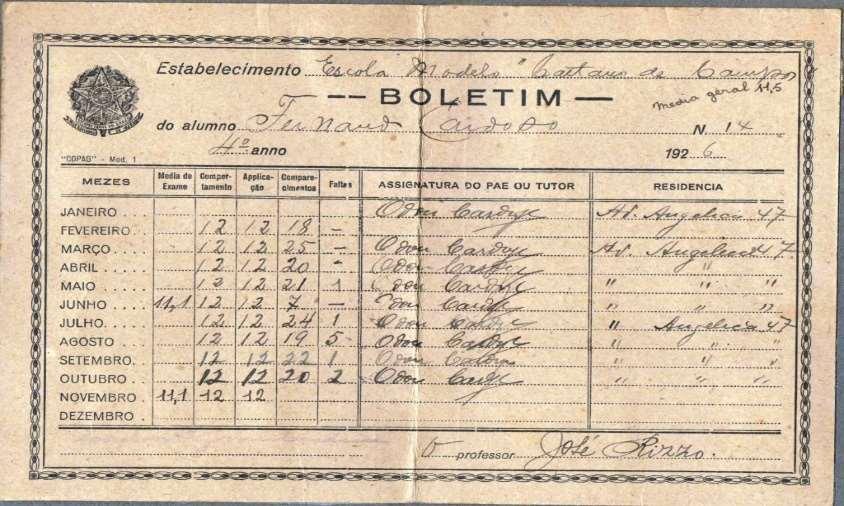 Estabelecimento Escola Modelo "Caetano de Campos
-- BOLETIM --
media geral 11,5
do alumno Fernando Cardoso N. 14
4º anno 1926
"COPAG" - Mod. 1
MEZES Media de Exame Comportamento Applicação Comparecimentos Faltas ASSIGNATURA DO PAE OU TUTOR RESIDENCIA
JANEIRO Odon Cardoso Av. Angelica 47
FEVEREIRO 12 12 18 -
MARÇO 12 12 25 - Odon Cardoso Av. Angelica 47
ABRIL 12 12 20 - Odon Cardoso " "
MAIO 12 12 21 1 Odon Cardoso " " "
JUNHO 11,1 12 12 7 - Odon Cardoso " " "
JULHO 12 12 24 1 Odon Cardoso " Angelica 47
AGOSTO 12 12 19 5 Odon Cardoso " " "
SETEMBRO 12 12 22 1 Odon Cardoso " " "
OUTUBRO 12 12 20 2 Odon Cardoso " " "
NOVEMBRO 11,1 12 12
DEZEMBRO
O professor José Rizzo.